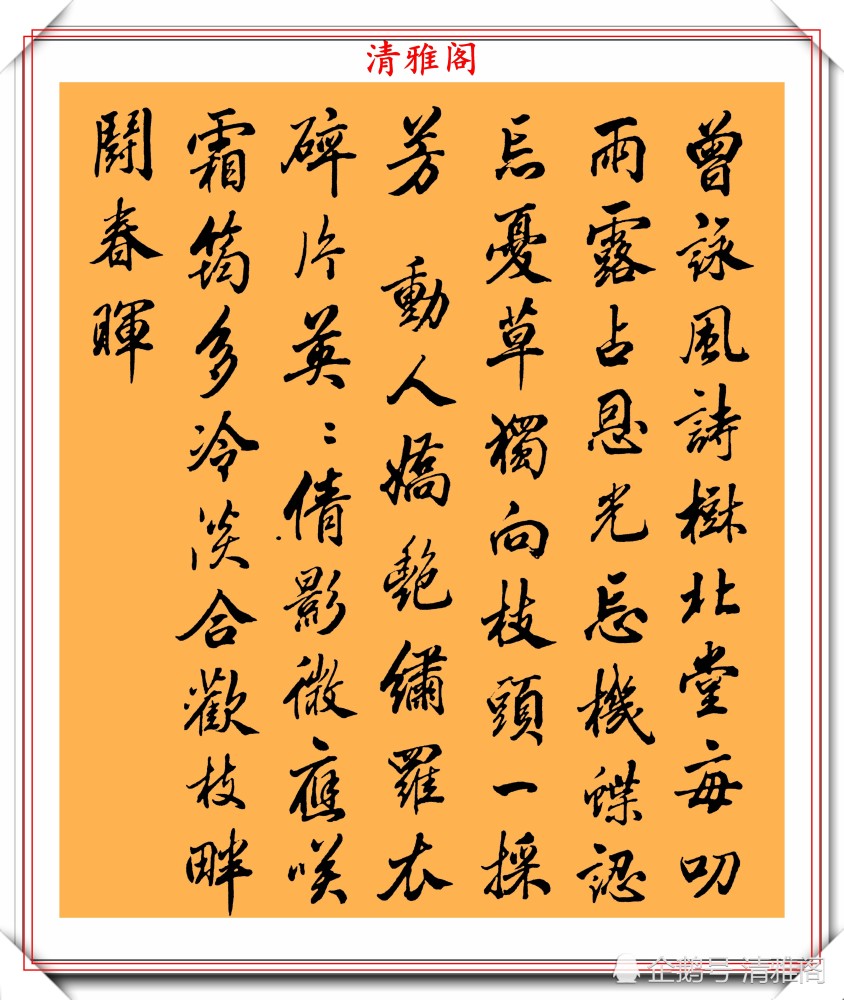 清雅阁
曾詠風詩樹北堂每叨
雨露占恩光忘機蝶認
忘憂草獨向枝頭一採
芳 動人嬌艷繡羅衣
碎片英〻倩影微應咲
霜筠多冷淡合歡枝畔
鬪春暉
企鹅号 清雅阁